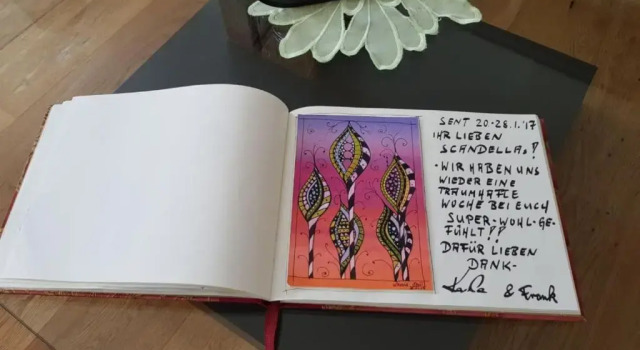 SENT 20.-28.1.'17
IHR LIEBEN
SCANDELLA,!
- WIR HABEN UNS
WIEDER EINE
TRAUMHAFTE
WOCHE BEI EUCH
SUPER-WOHL-GE-
FÜHLT!!
DAFÜR LIEBEN
DANK-
& Frank